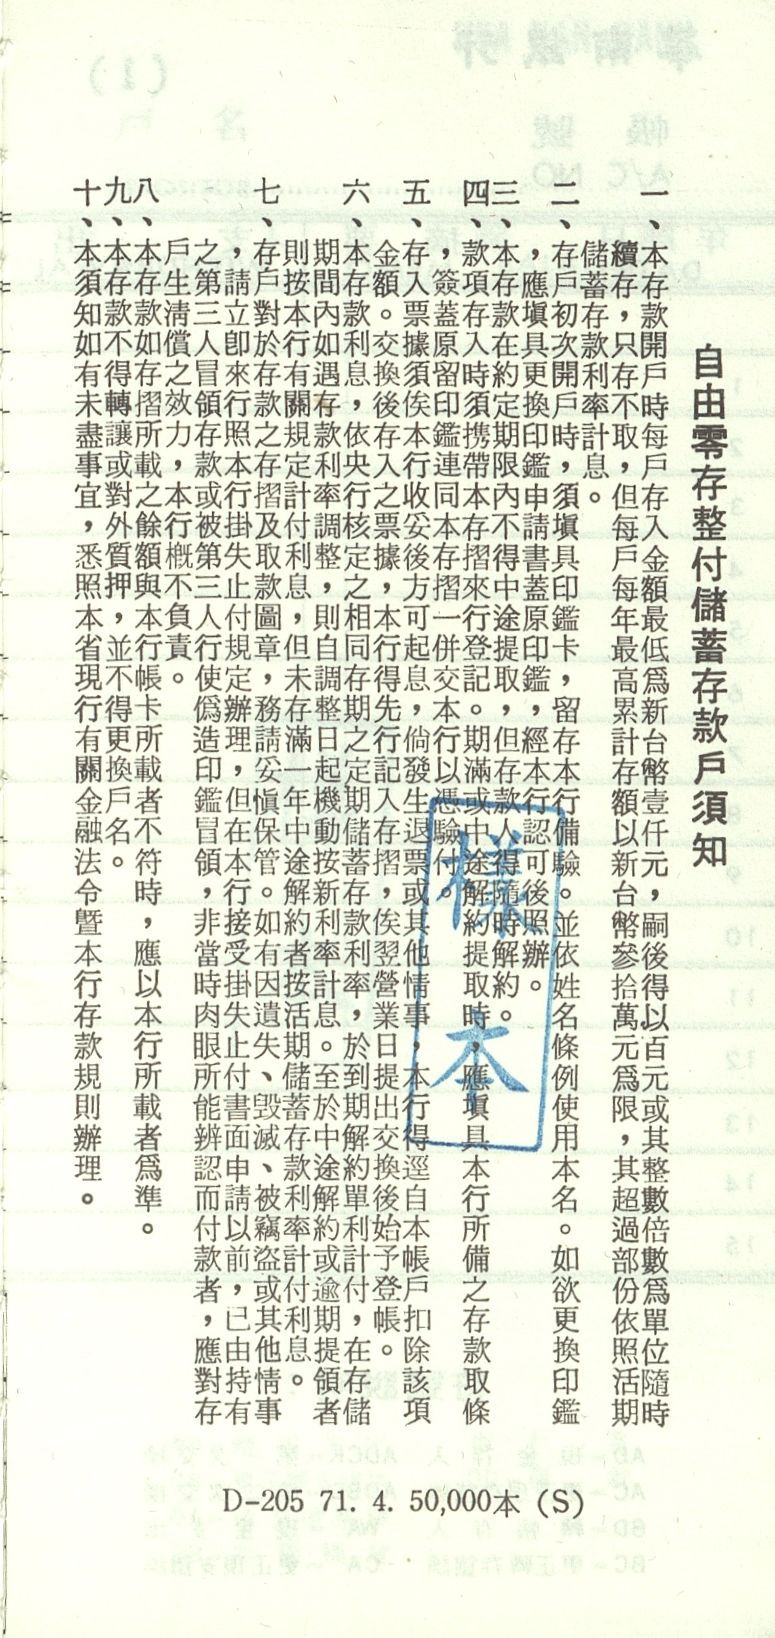 自由零存整付儲蓄存款戶須知
一、本存款開戶時每戶存入金額最低爲新台幣壹仟元，嗣後得以百元或其整數倍數爲單位隨時
續存，只存不取，但每戶每年最高累計存額以新台幣參拾萬元爲限，其超過部份依照活期
儲蓄存款利率計息。
二、存戶初次開戶時，須塡具印鑑卡，留存本行備驗。並依姓名條例使用本名。如欲更換印鑑
，應塡具更換印鑑申請書蓋原印鑑，經本行認可後照辦。
三、本存款在約定期限內不得中途提取，但存款人得隨時解約。
四、款項存入時須携帶本存摺來行登記。期滿或中途解約提取時，應塡具本行所備之存款取條
，簽蓋原留印鑑連同本存摺一併交本行以憑驗付。
五、存入票據須俟本行收妥後方可起息，倘發生退票或其他情事，本行得逕自本帳戶扣除該項
金額。交換後存入之票據，本行得先行記入存摺，俟翌營業日提出交換後始予登帳。
六、本存款利息，依央行核定之相同存期之定期儲蓄存款利率，於到期解約單利計付，在存儲
期間內如遇存款利率調整，則自調整日起機動按新利率計息。至於中途解約或逾期提領者
則按本行有關規定計付利息，但未存滿一年中途解約者按活期儲蓄存款利率計付利息。
七、存戶對於存款之存摺及取款圖章，務請妥愼保管。如有因遺失、毀滅、被竊盜或其他情事
，請立卽來行照本行掛失止付規定辦理，但在本行接受掛失止付書面申請以前，已由持有
之第三人冒領存款或被第三人行使僞造印鑑冒領，非當時肉眼所能辨認而付款者，應對存
戶生淸償之效力，本行槪不負責。
八、本存款如存摺所載之餘額與本行帳卡所載者不符時，應以本行所載者爲準。
九、本存款不得轉讓或對外質押，並不得更換戶名。
十、本須知如有未盡事宜，悉照本省現行有關金融法令暨本行存款規則辦理。
樣本
D-205 71. 4. 50,000本 (S)